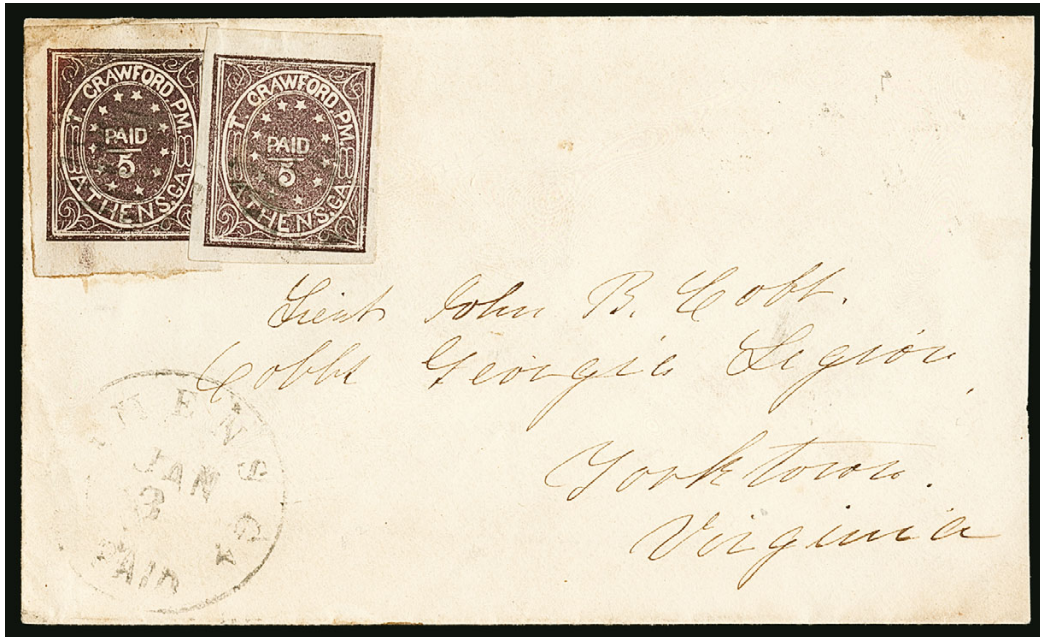 T. CRAWFORD. PM.
PAID
5
ATHENS, GA.
T. CRAWFORD. PM.
PAID
5
ATHENS, GA.
Lieut John B. Cobb.
Cobbs Georgia Legion
Yorktown.
Virginia
ATHENS GA
JAN
3
PAID